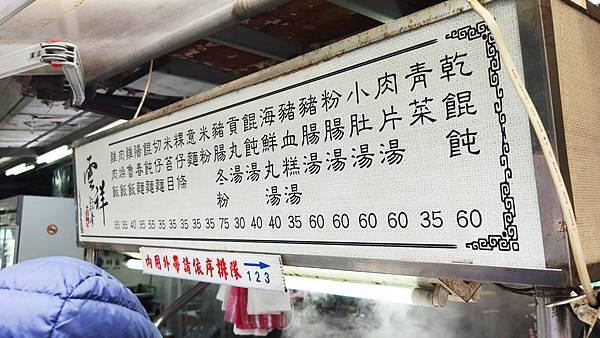 乾餛飩 60
青菜 35
肉片湯 60
小肚湯 60
粉腸湯 60
豬腸湯 60
豬血糕湯 35
海鮮丸湯 40
餛飩湯 40
貢丸湯 30
豬腸冬粉 75
米粉 35
意麵 35
粿仔條 35
米苔目 35
切仔麵 35
餛飩麵 55
陽春麵 35
肉燥飯 35
雞肉飯 35
雲祥
內用外帶請依序排隊
1 2 3